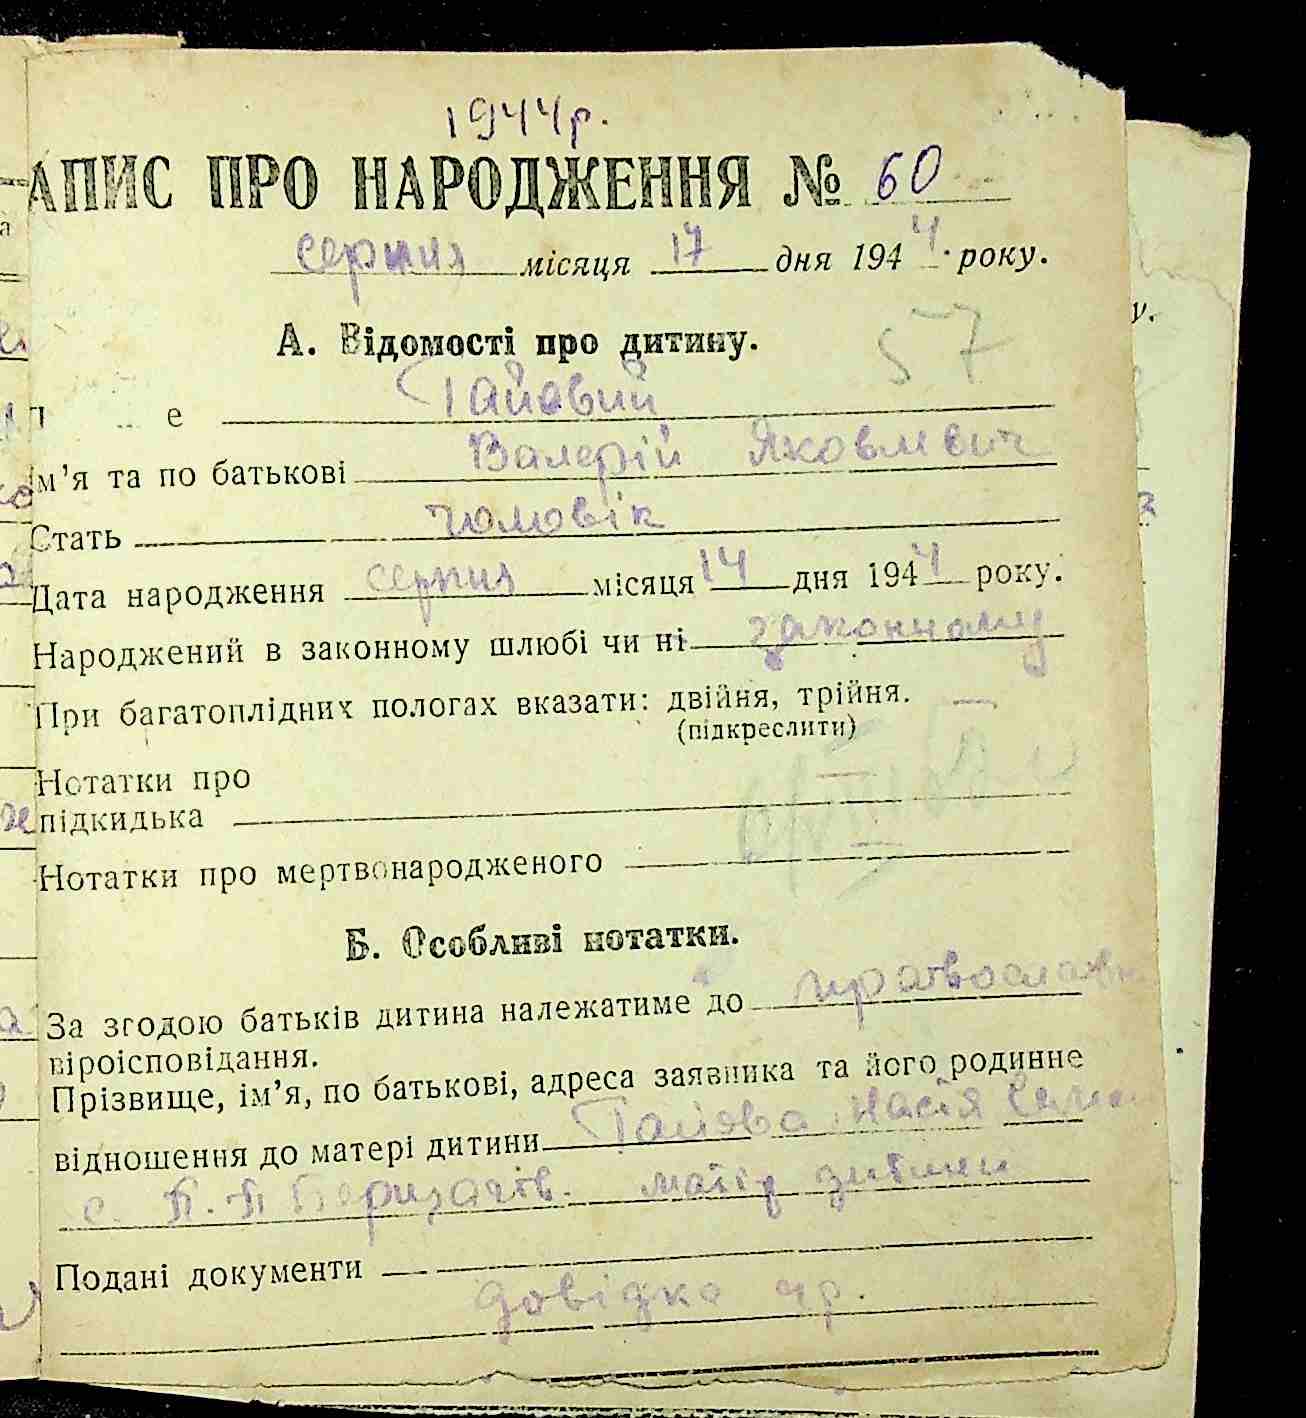 1944р.
АПИС ПРО НАРОДЖЕННЯ № 60
серпня місяця 17 дня 1944 року.
А. Відомості про дитину.
57
П е Гайовий
ім’я та по батькові Валерій Яковлєвич
Стать чоловік
Дата народження серпня місяця 14 дня 1944 року.
Народжений в законному шлюбі чи ні законному
При багатоплідних пологах вказати: двійня, трійня. —
(підкреслити)
Нотатки про
підкидька
Нотатки про мертвонародженого
Б. Особливі нотатки.
За згодою батьків дитина належатиме до православн
віроісповідання.
Прізвище, ім’я, по батькові, адреса заявника та його родинне
відношення до матері дитини Гайова Насія
с. дитини
Подані документи
довідка